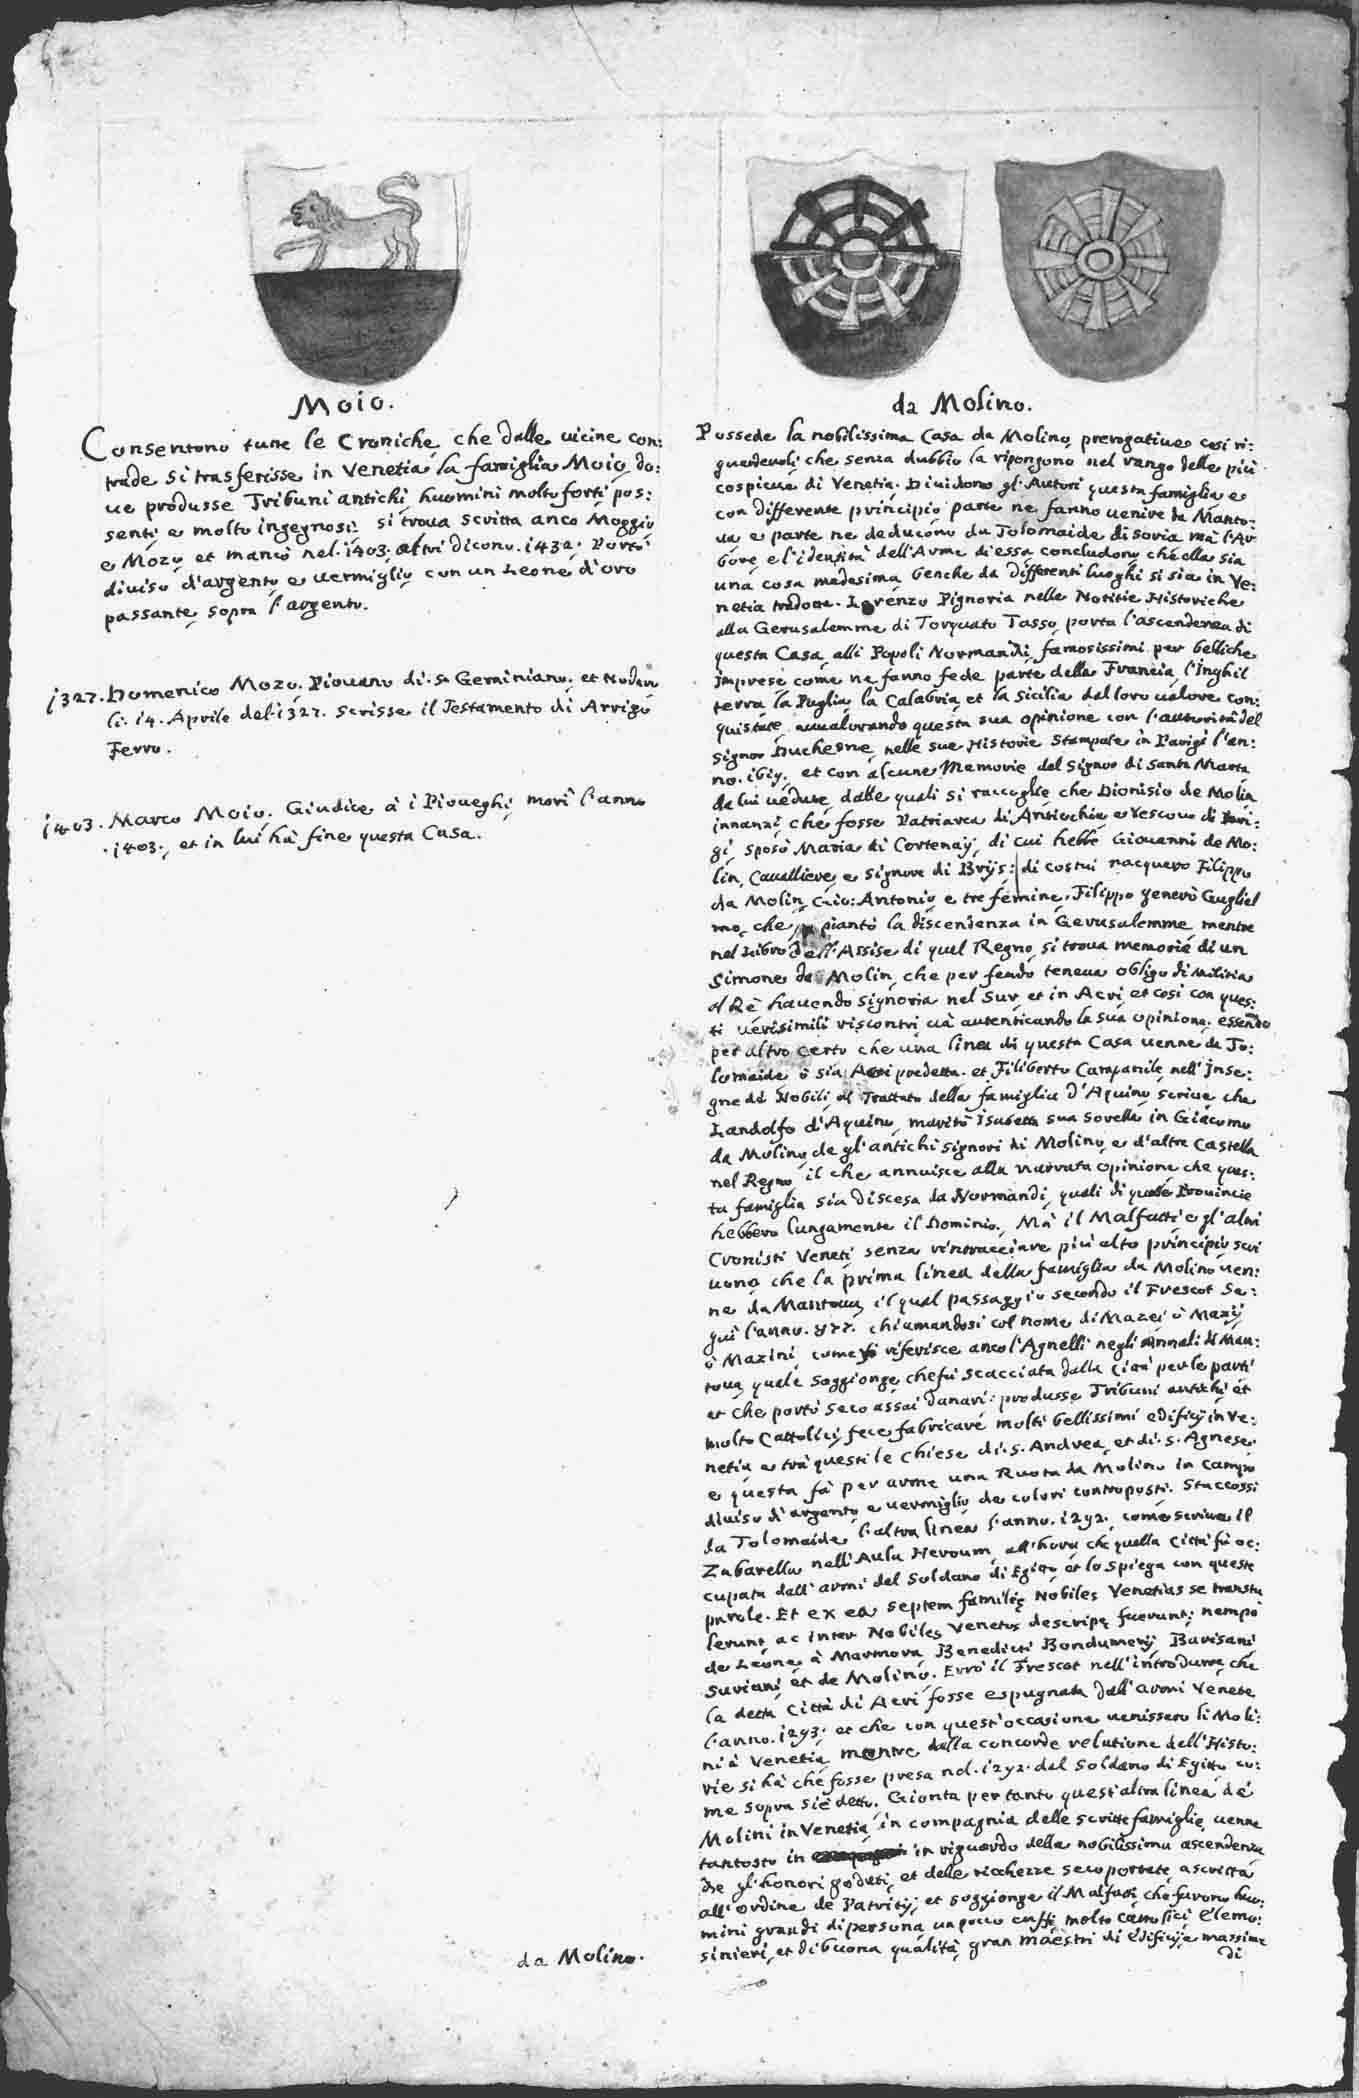 Moio.
Consentono tutte le Croniche, che dalle vicine con:
trade si trasferisse in Venetia la famiglia Moio, do:
ue produsse Tribuni antichi, huomini molto forti pos:
senti, e molto ingegnosi. si troua scritta anco Moggio
e Mozo, et mancò nel. 1403. altri dicono. 1432. Portò
diuiso d'argento, e uermiglio, con un Leone d'oro
passante, sopra l'argento.
1327. Domenico Mozo. Piouano di. S. Geminiano, et Nodaro
li. 14. Aprile del. 1327. scrisse il Testamento di Arrigo
Ferro.
1403. Marco Moio. Giudice à i Pioueghi, morì l'anno
. 1403., et in lui hà fine questa Casa.
da Molino.
da Molino.
Possede la nobilissima Casa da Molino, prerogatiue così ri:
guardeuoli che senza dubbio la ripongono nel rango delle più
cospicue di Venetia. Diuidono gl'Autori questa famiglia e
con differente principio parte ne fanno uenire da Manto:
ua e parte ne deducono da Tolomaide di Soria, mà l'Ar
bore, e l'identità dell'Arme d'essa concludono, che ella sia
una cosa medesima, benche da differenti luoghi si sia in Ve:
netia tradotta. Lorenzo Pignoria nelle Notitie Historiche
alla Gerusalemme di Torquato Tasso, porta l'ascendenza di
questa Casa, alli Popoli Normandi, famosissimi per belliche
imprese come ne fanno fede parte della Francia, l'Inghil
terra, la Puglia, la Calabria, et la Sicilia dal loro ualore con:
quistate, auualorando questa sua opinione con l'autorità del
Signor Duchesne, nelle sue Historie Stampate in Parigi l'an:
no. 1619., et con alcune Memorie del Signor di Santa Marta
da lui uedute, dalle quali si raccoglie che Dionisio de Molin
innanzi, che fosse Patriarca di Antiochia, e Vescouo di Pari:
gi, sposò Maria di Cortenay, di cui hebbe Giouanni de Mo:
lin, Caualliere, e Signore di Brijs: di costui nacquero Filippo
da Molin, Gio: Antonio, e tre femine. Filippo generò Gugliel
mo, che piantò la discendenza in Gerusalemme, mentre
nel Libro dell'Assise di quel Regno, si troua memoria di un
Simone de Molin, che per feudo teneua obligo di militia
al Rè, hauendo Signoria nel Sur, et in Acri, et così con ques:
ti uerisimili riscontri uà autenticando la sua opinione. essendo
per altro certo che una linea di questa Casa uenne da To:
lomaide, ò sia Acri predetta. et Filiberto Campanile, nell'Inse:
gne de Nobili, al Trattato della famiglia d'Aquino, scriue che
Landolfo d'Aquino, maritò Isabetta sua sorella in Giacomo
da Molino, de gl'antichi Signori di Molino, e d'altre Castella
nel Regno, il che annuisce alla narrata opinione che ques:
ta famiglia sia discesa da Normandi, quali di quelle Prouincie
hebbero lungamente il Dominio. Mà il Malfatti e gl'altri
Cronisti Veneti, senza rintracciare più alto principio scri
uono che la prima linea della famiglia da Molino uen:
ne da Mantoua, il qual passaggio secondo il Frescot se:
guì l'anno. 877. chiamandosi col nome di Mazei, ò Mazij
ò Mazini, come riferisce anco l'Agnelli negli Annali di Man:
toua, quale soggionge che fù scacciata dalla Città per le parti
et che portò seco assai danari: produsse Tribuni antichi, et
molto Cattolici, fece fabricare molti bellissimi edificij in Ve:
netia, e trà questi le Chiese di. S. Andrea, et di. S. Agnese.
e questa fà per arme una Ruota da Molino in campo
diuiso d'argento, e uermiglio de colori contraposti. Staccossi
da Tolomaide, l'altra linea l'anno. 1292. come scriue il
Zabarella nell'Aula Heroum, all'hora che quella Città fù oc:
cupata dall'armi del Soldano di Egitto, et lo spiega con queste
parole. Et ex ea septem familię Nobiles Venetias se transtu
lerunt, ac inter Nobiles Venetos descriptę fuerunt; nempè
de Leone, à Marmora, Benedicti, Bondumerij, Barisani,
Suriani, et de Molino. Errò il Frescot nell'introdurre, che
la detta Città di Acri fosse espugnata dall'armi Venete
l'anno. 1293. et che con quest'occasione uenissero li Moli:
ni à Venetia, mentre dalla concorde relatione dell'Histo:
rie si hà che fosse presa nel. 1292. dal Soldano di Egitto, co:
me sopra si è detto. Gionta per tanto quest'altra linea de
Molini in Venetia, in compagnia delle scritte famiglie, uenne
tantosto in in riguardo della nobilissima ascendenza
de gl'honori goduti, et delle ricchezze seco portate, ascritta
all'ordine de Patritij; et soggionge il Malfatti, che furono huo:
mini grandi di persona, un poco cuffi, molto Cattolici, elemo:
sinieri, et di buona qualità, gran maestri di edificij, e massime
di